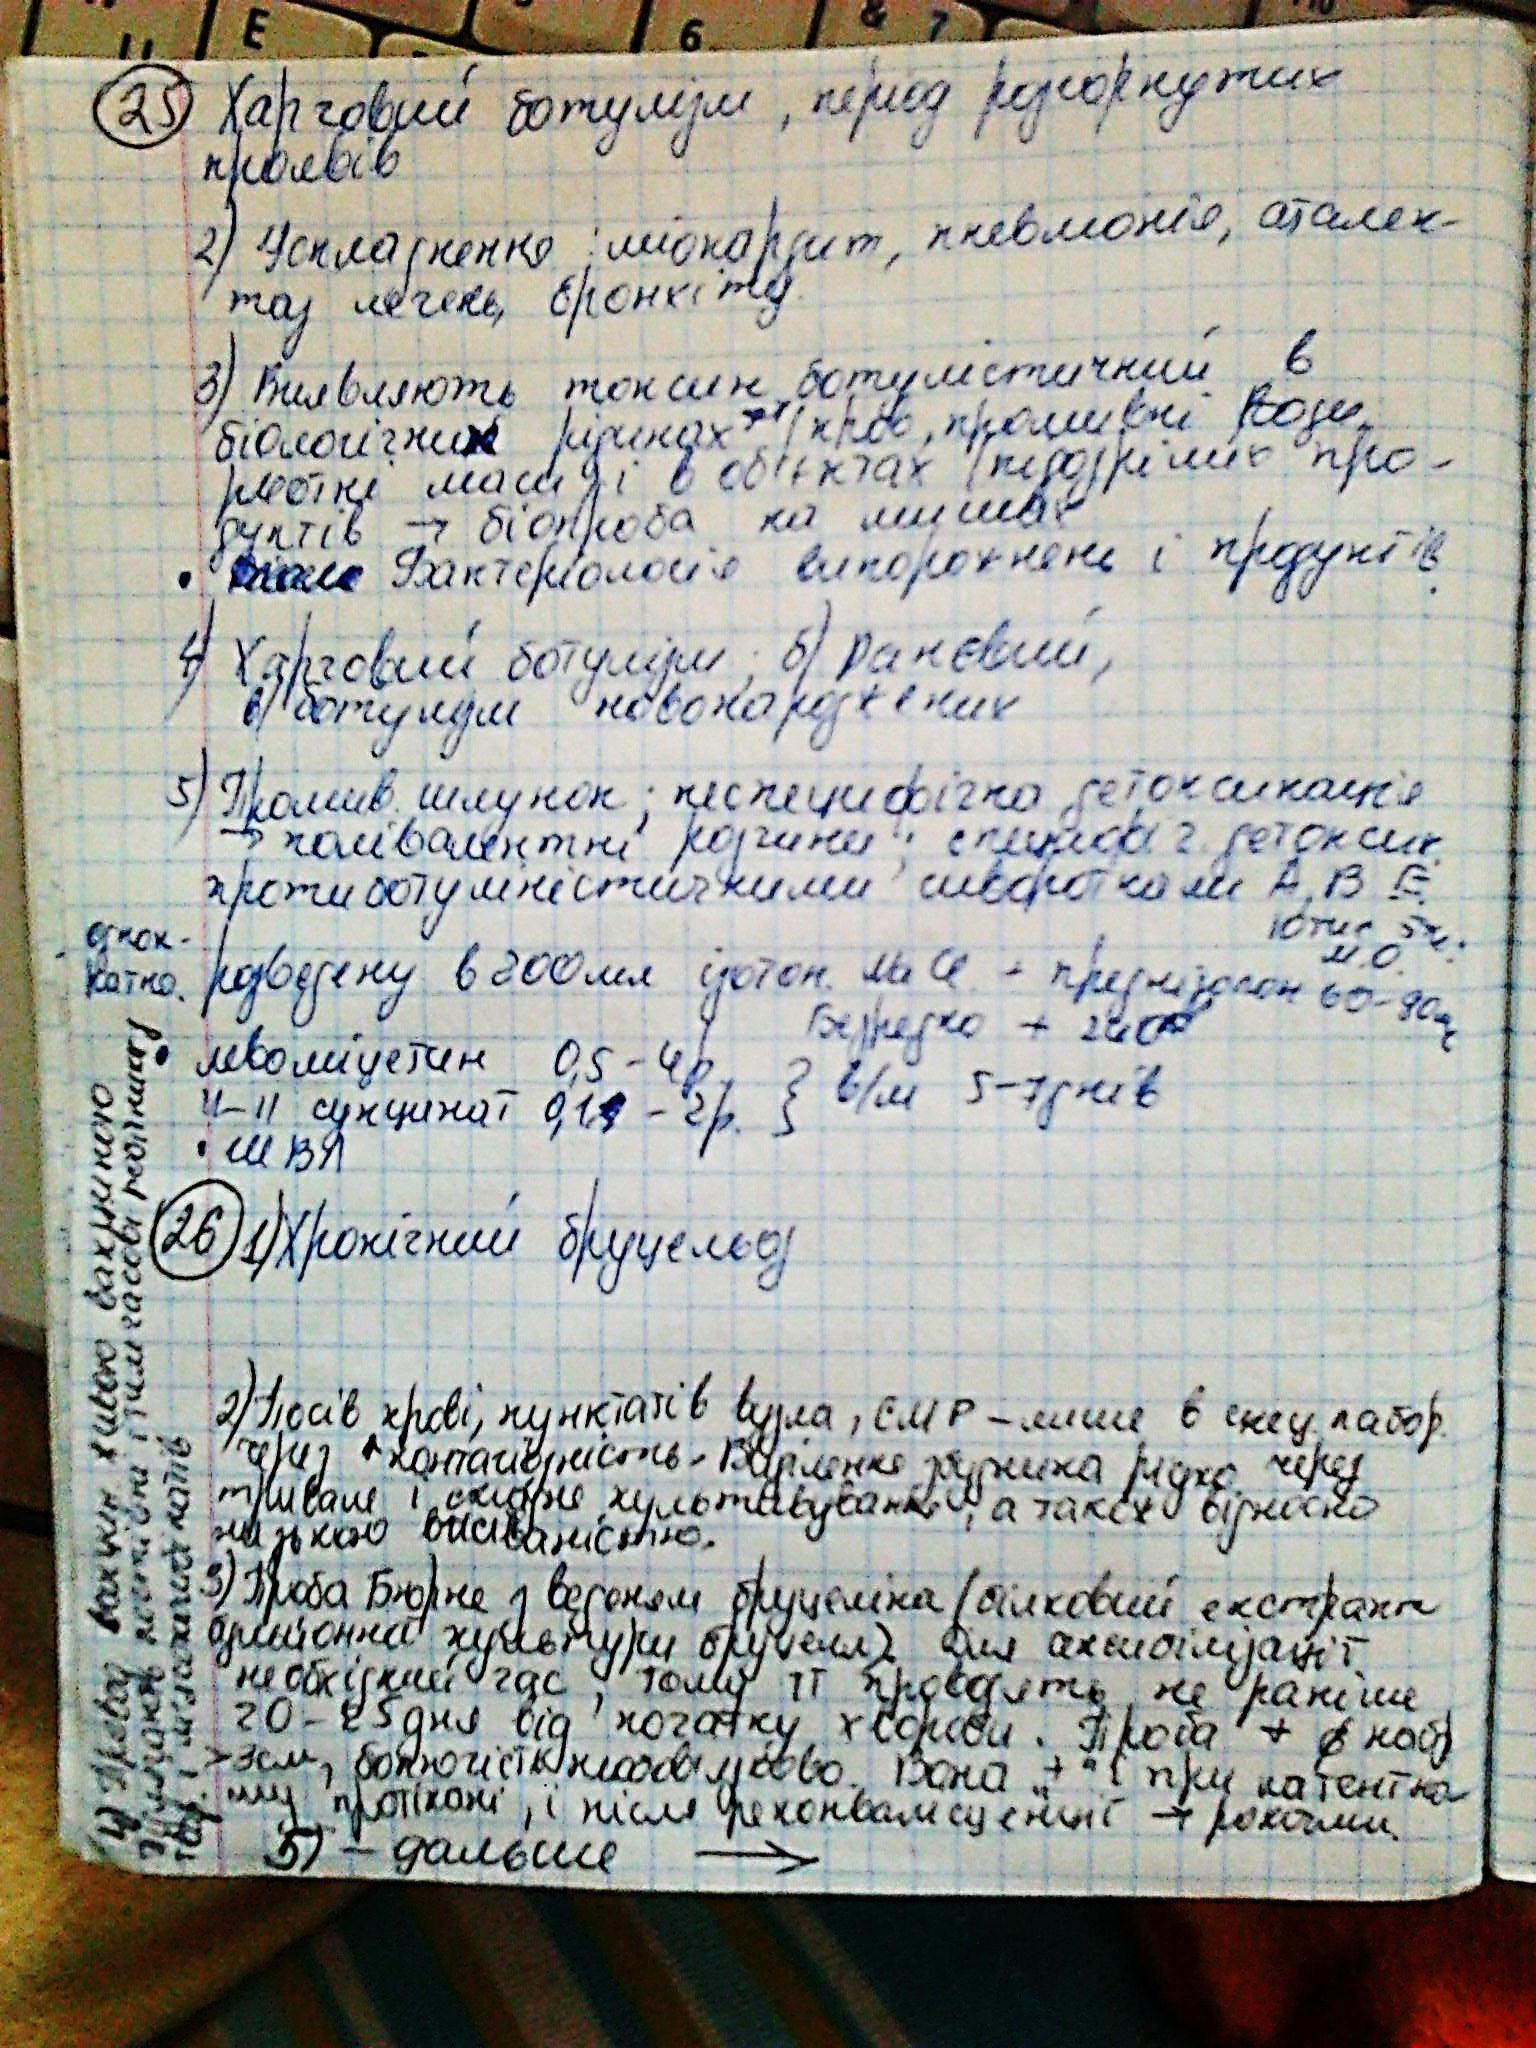 25 Харчовий ботулізм, період розгорнутих
проявів
2) Ускладнення: міокардит, пневмонія, аталек-
таз легень, бронхіту.
3) Виявляють токсин ботулістичний в
біологічних рідинах (кров, промивні води,
рвотні маси) і в об'єктах (підозрілих про-
дуктів → біопроба на мишах
• Бактеріологія випорожнень і продуктів.
4) Харчовий ботулізм; б) раневий,
в) ботулізм новонароджених
5) Промив. шлунок; неспецифічна детоксикація
→ полівалентні розчини; специфіч. детоксик.
протиботуліністичними сиворотками А, В Е.
10тис 5т.
М.О.
однок-
ратно.
розведену в 200мл ізотон. NaCl + преднізолон 60-90мг
Безредко +
• левоміцетин 0,5 - 4р. } в/м 5-7днів
Ч-II сукцинат 0,1 - 2р.
• ШВЛ
26 1) Хронічний бруцельоз
2) Посів крові, пунктатів вузла, СМР – лише в спец. лабор.
через ↑ контагіозність. Виділення збудника рідко через
тривале і складне культивування, а також відносно
низькою висіваністю.
3) Проба Бюрне з веденям бруцеліна (білковий екстракт
бульйонної культури бруцел). Для алергізації
необхідний час, тому її проводять не раніше
20-25дня від початку хвороби. Проба + є набр
>3см, болючість необовязково. Вона "+" і при латентно
му протіканні, і після реконвалісценції → роками.
5) – дальше →
4) Превац вакцин живою вакциною
постійні і тимчасові робітниці
тов. і мязокомбінатів